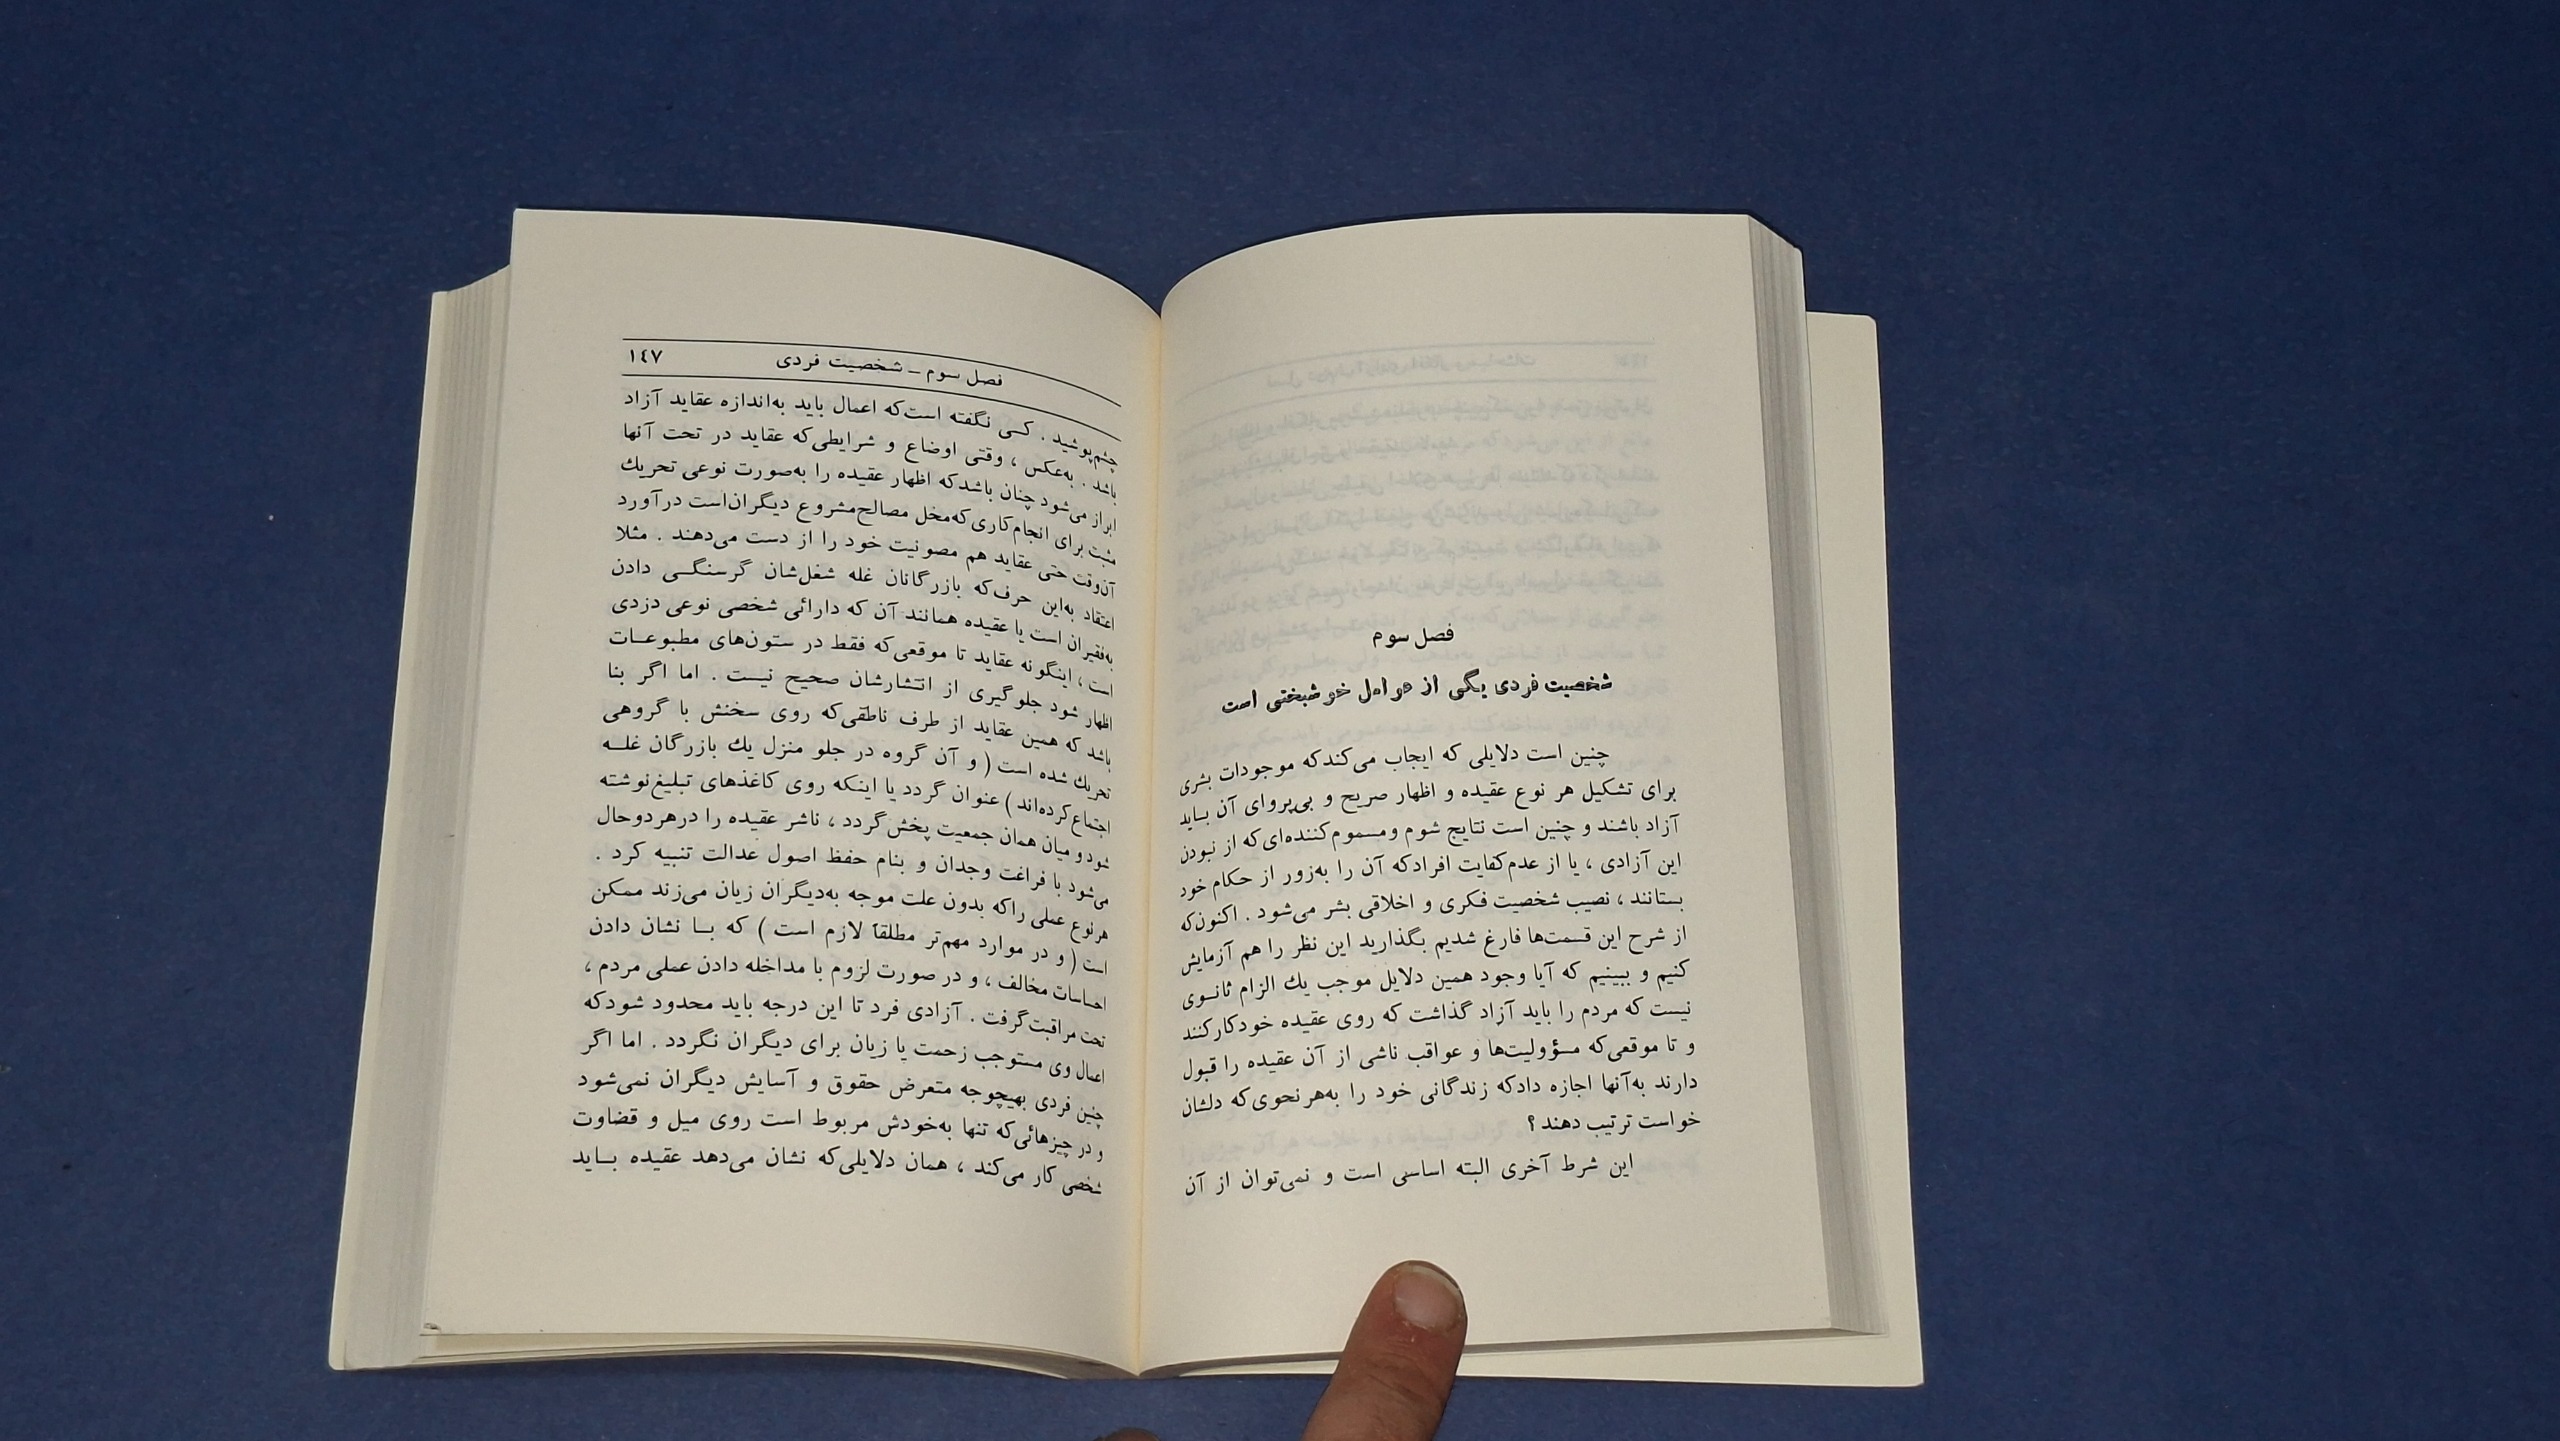 فصل سوم
شخصیت فردی یکی از عوامل خوشبختی است
چنین است دلایلی که ایجاب می‌کند که موجودات بشری
برای تشکیل هر نوع عقیده و اظهار صریح و بی‌پروای آن بـاید
آزاد باشند و چنین است نتایج شوم و مسموم‌کننده‌ای که از نبودن
این آزادی ، یا از عدم کفایت افراد که آن را به‌زور از حکام خود
بستانند ، نصیب شخصیت فکری و اخلاقی بشر می‌شود . اکنون که
از شرح این قسمت‌ها فارغ شدیم بگذارید این نظر را هم آزمایش
کنیم و ببینیم که آیا وجود همین دلایل موجب یك الزام ثانـوی
نیست که مردم را باید آزاد گذاشت که روی عقیده خود کار کنند
و تا موقعی که مسؤولیت‌ها و عواقب ناشی از آن عقیده را قبول
دارند به‌آنها اجازه داد که زندگانی خود را به‌هر نحوی که دلشان
خواست ترتیب دهند ؟
این شرط آخری البته اساسی است و نمی‌توان از آن
فصل سوم ـ شخصیت فردی ١٤٧
چشم پوشید . کسی نگفته است که اعمال باید به‌اندازه عقاید آزاد
باشد . به‌عکس ، وقتی اوضاع و شرایطی که عقاید در تحت آنها
ابراز می‌شود چنان باشد که اظهار عقیده را به‌صورت نوعی تحریك
مثبت برای انجام کاری که مخل مصالح مشروع دیگران است درآورد
آن‌وقت حتی عقاید هم مصونیت خود را از دست می‌دهند . مثلا
اعتقاد به‌این حرف که بازرگانان غله شغل‌شان گرسنگـی دادن
به‌فقیران است یا عقیده همانند آن که دارائی شخصی نوعی دزدی
است ، اینگونه عقاید تا موقعی که فقط در ستون‌های مطبوعـات
اظهار شود جلوگیری از انتشارشان صحیح نیست . اما اگر بنا
باشد که همین عقاید از طرف ناطقی که روی سخنش با گروهی
تحریك شده است ( و آن گروه در جلو منزل یك بازرگان غلـه
اجتماع کرده‌اند ) عنوان گردد یا اینکه روی کاغذهای تبلیغ نوشته
شود و میان همان جمعیت پخش گردد ، ناشر عقیده را در هر دو حال
می‌شود با فراغت وجدان و بنام حفظ اصول عدالت تنبیه کرد .
هر نوع عملی را که بدون علت موجه به‌دیگران زیان می‌زند ممکن
است ( و در موارد مهم‌تر مطلقاً لازم است ) که بـا نشان دادن
احساسات مخالف ، و در صورت لزوم با مداخله دادن عملی مردم ،
تحت مراقبت گرفت . آزادی فرد تا این درجه باید محدود شود که
اعمال وی مستوجب زحمت یا زیان برای دیگران نگردد . اما اگر
چنین فردی بهیچوجه متعرض حقوق و آسایش دیگران نمی‌شود
و در چیزهائی که تنها به‌خودش مربوط است روی میل و قضاوت
شخصی کار می‌کند ، همان دلایلی که نشان می‌دهد عقیده بـاید